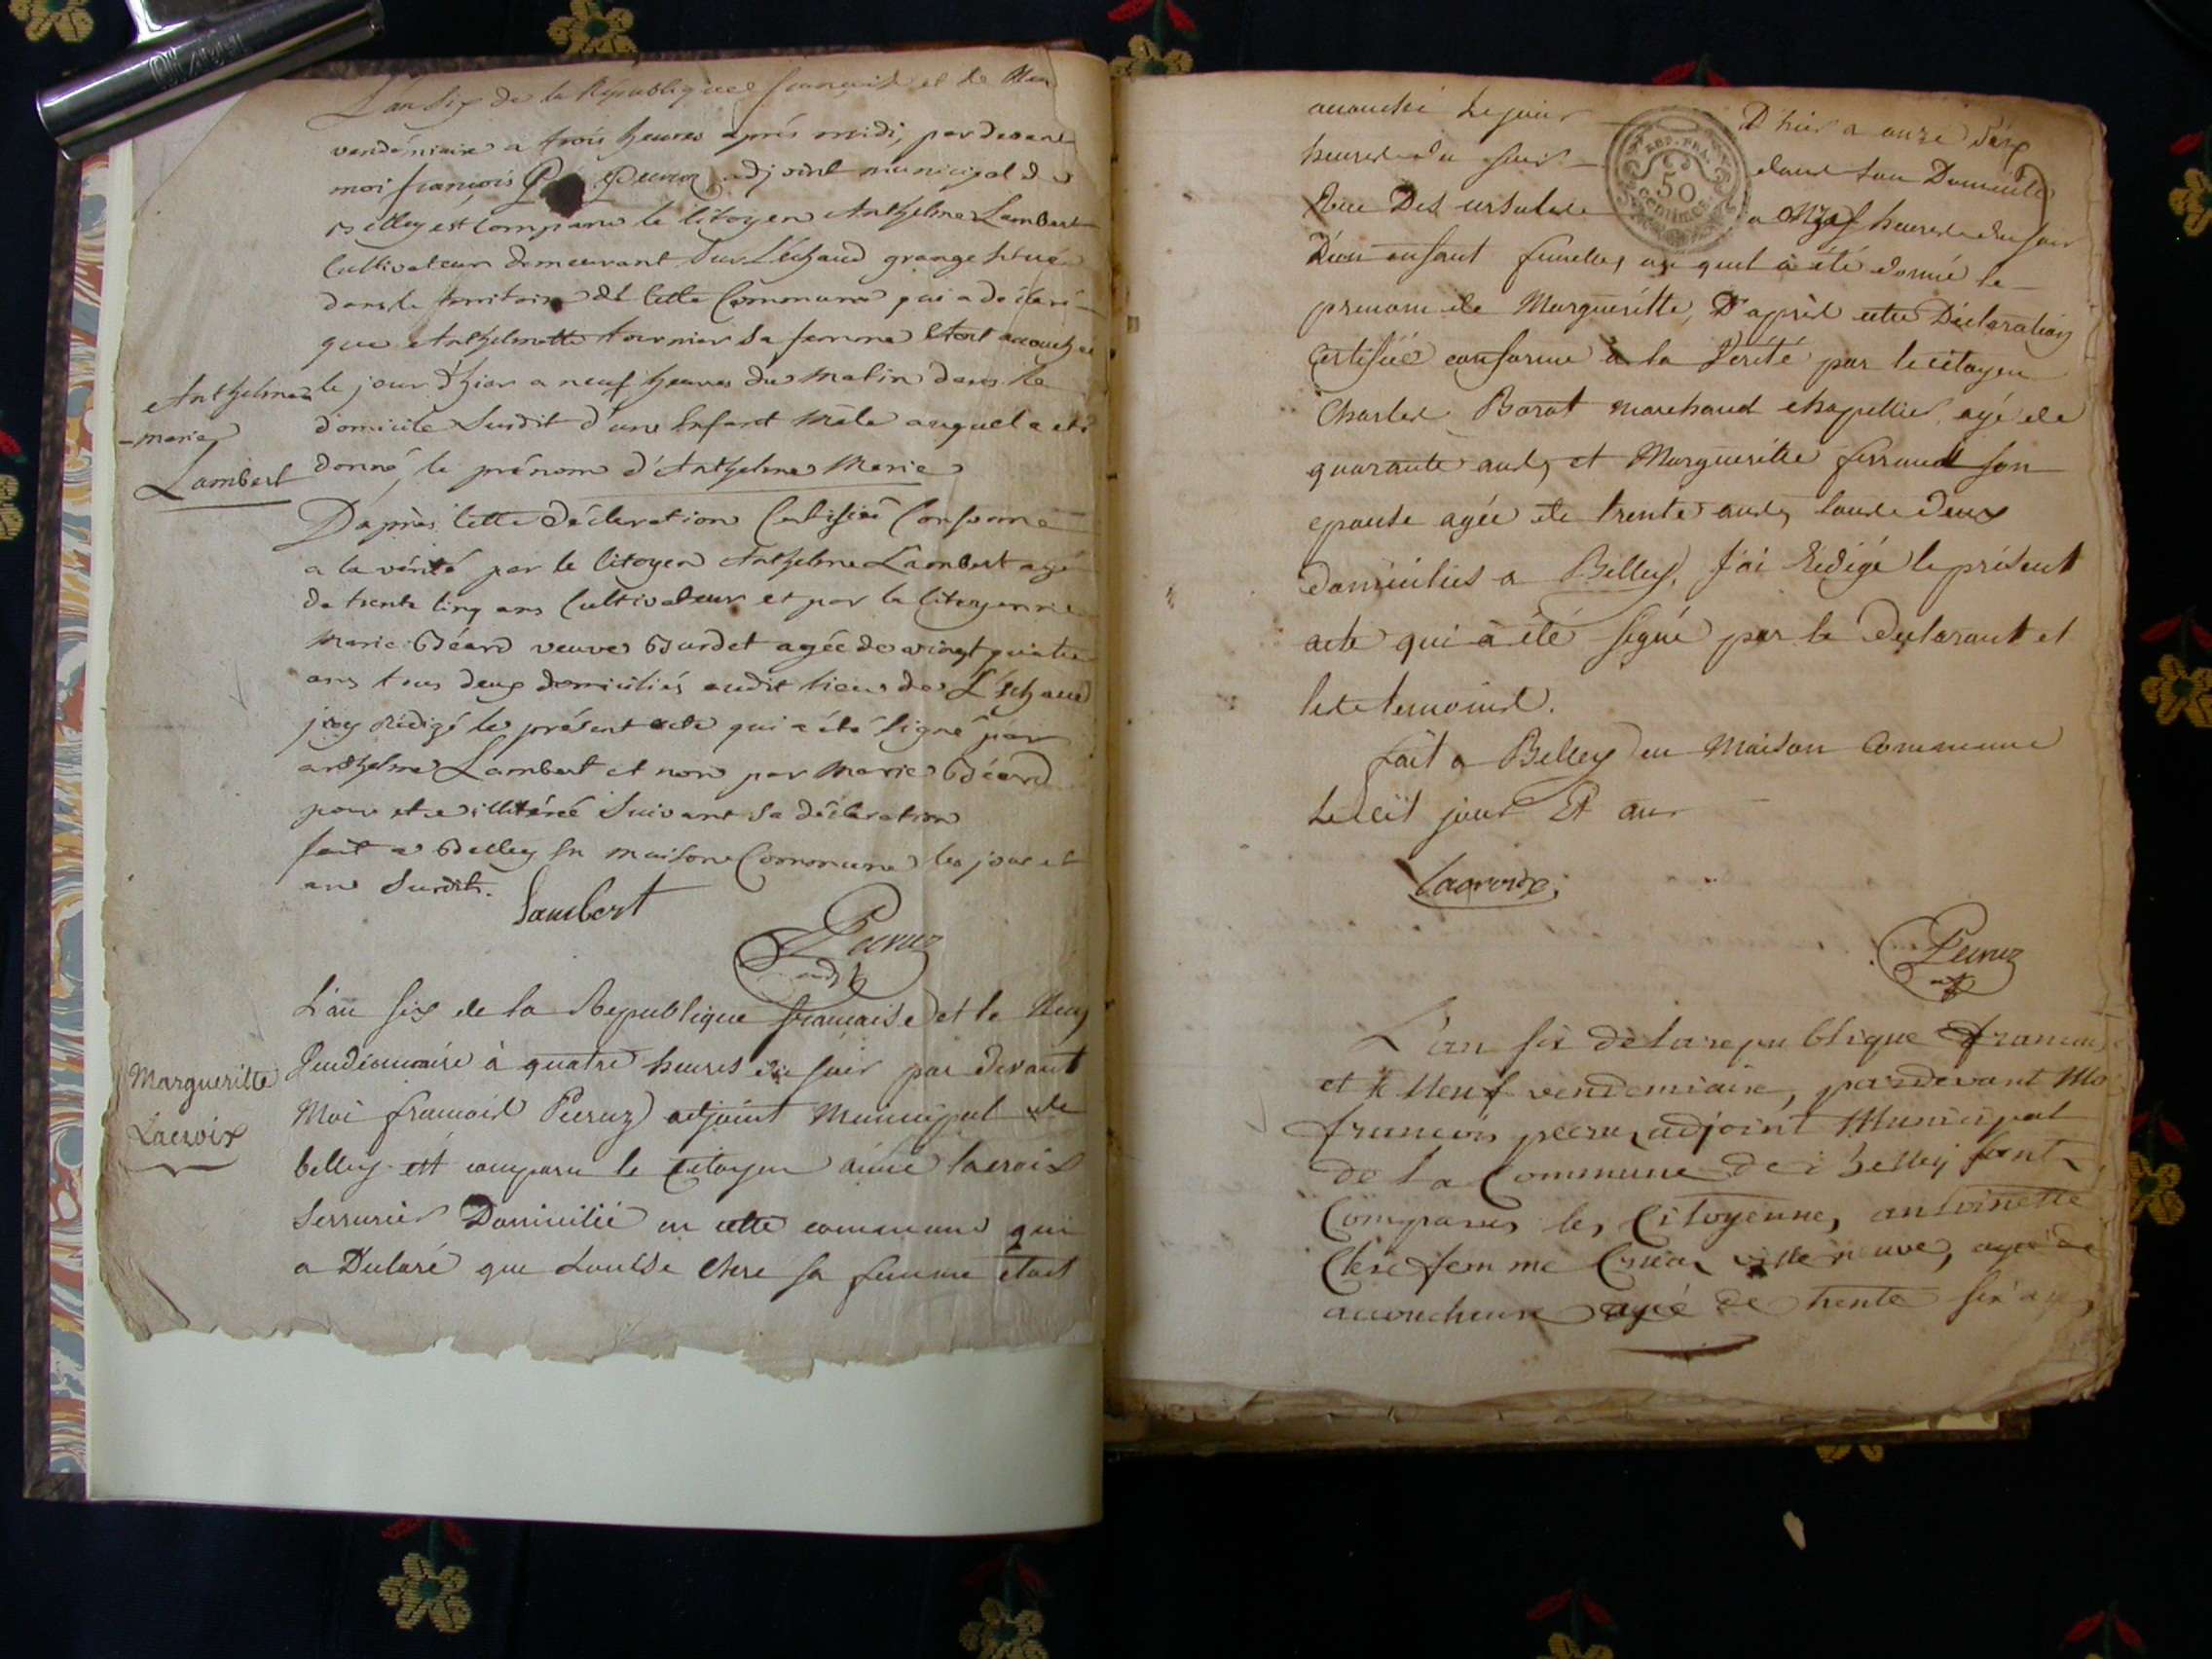 L'an six de la République française et le Neuf
vendémiaire a trois heures après midi, par devant
moi françois Peeruz adjoint municipal de
Belley est Comparu le Citoyen Anthelme Lambert
Cultivateur demeurant sur L'échaud grange située
dans le territoire de cette Commune qui a déclaré
que Anthelmette tournier sa femme Etoit accouchée
Anthelme le jour d'hier a neuf heures du matin dans le
-marie
domicile Susdit d'un Enfant mâle auquel a été
Lambert
donné le prénom d'Anthelme Marie
D'après cette déclaration Certifiée Conforme
a la vérité par le Citoyen Anthelme Lambert agé
de trente cinq ans Cultivateur et par la Citoyenne
Marie Béard veuve Burdet agée de vingt quatre
ans tous deux domiciliés audit lieu de L'échaud
j'ay Rédigé le présent acte qui a été signé par
anthelme Lambert et non par Marie Béard
pour etre illitérée Suivant sa déclaration
fait a Belley En maison Commune les jour et
an Susdits.
Lambert
Peeruz
adj
L'an six de la République française et le Neuf
Vendémiaire à quatre heures du soir par devant
Margueritte
Lacroix
Moi francois Peeruz adjoint Municipal de
belley est comparu le Citoyen aimé lacroix
Serrurier Domicilié en cette commune qui
a Declaré que Louise Clere sa femme étoit
accouché le jour D'hier a onze
REP. FRA.
50
centimes
heures du soir dans son Domicile
Rue Des ursules a heures du soir
D'un enfant femelle, au quel a été donné le
prenom de Margueritte, D'après cette Déclaration
Certifiée conforme à la Verité par le citoyen
Charles Borat marchand chapellier agé de
quarante ans, et Margueritte ferrand son
epouse agée de trente ans, tous deux
domiciliés a Belley, J'ai Rédigé le présent
acte qui a été signé par le Declarant et
les temoins.
fait a Belley en Maison Commune
Lesdit jour Et an
Lacroix
Peeruz
adj
L'an six de la republique francai
et le Neuf vendemiaire, pardevant Mo
francois peeruz adjoint Municipal
de la Commune de belley sont
Comparus les Citoyennes antoinette
Clere femme
accoucheuse agée de trente six ans,